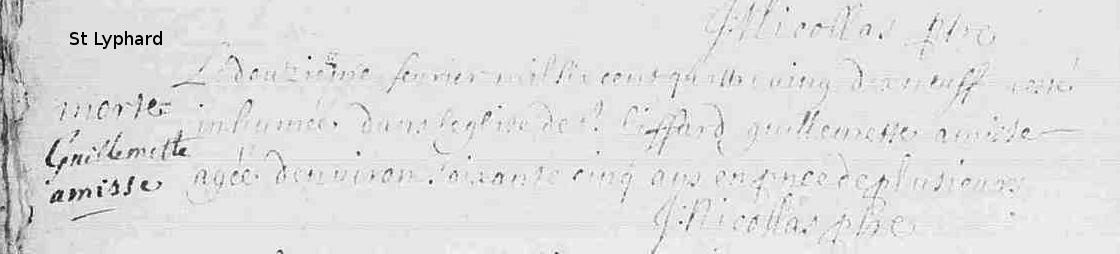 J: Nicollas ptre
St Lyphard
Le douziéme feuvrier mil six cent quattre vingt dix neuff a esté
morte
inhumée dans leglise de St. Liffard guillemette amisse
Guillemette
agée denviron soixante cinq ans en pnce de plusieurs
amisse
J: Nicollas ptre